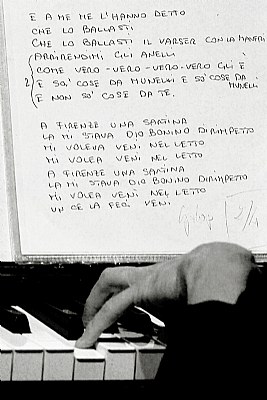 E A ME ME L'HANNO DETTO
CHE LO BALLASTI
CHE LO BALLASTI IL VARSER CON LA
ARRIRENDIMI GLI ANELLI
COME VERO-VERO-VERO-VERO GLI È
2) E SO' COSE DA MUNELLI E SO' COSE DA MUNELLI
E NON SO' COSE DA TE.
A FIRENZE UNA SANTINA
LA MI STAVA DIO BONINO DIRIMPETTO
MI VOLEVA VENI NEL LETTO
MI VOLEA VENI NEL LETTO
A FIRENZE UNA SANTINA
LA MI STAVA DIO BONINO DIRIMPETTO
MI VOLEA VENI NEL LETTO
UN CE LA FECI VENI
2/4